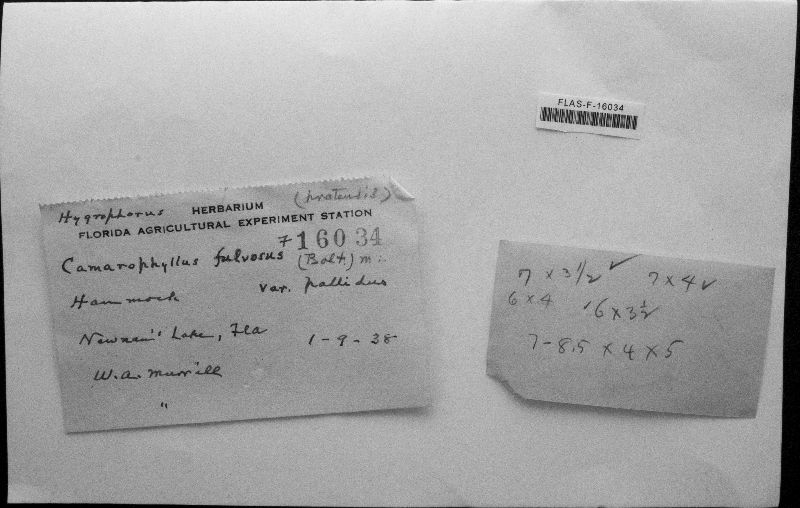 FLAS-F-16034
Hygrophorus HERBARIUM (pratensis)
FLORIDA AGRICULTURAL EXPERIMENT STATION
F 16034
Camarophyllus fulvosus (Bolt.) M.
Hammock var. pallidus
Newnan's Lake, Fla 1-9-38
W.A. Murrill
"
7 x 3 1/2 ✓ 7 x 4 ✓
6 x 4 6 x 3 1/2
7-8.5 x 4 x 5